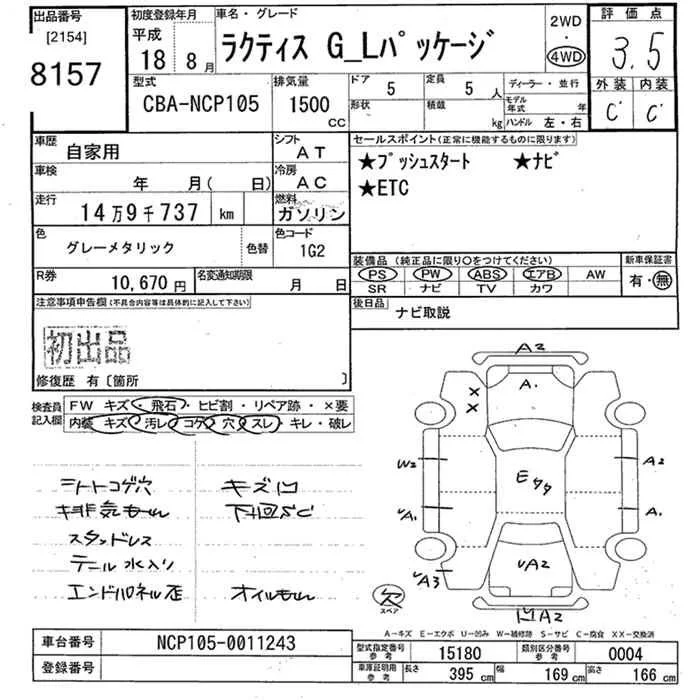 出品番号
[2154]
8157
初度登録年月
平成
18 8月
車名・グレード
ラクティス G_Lパッケージ
2WD
・
4WD
評価点
3.5
外装 内装
C C
型式
CBA-NCP105
排気量
1500
CC
ドア
5
定員
5 人
形状
積載
kg
ディーラー・並行
モデル年式 年
ハンドル 左・右
車歴
自家用
シフト
AT
車検
年 月( 日)
冷房
AC
走行
14万9千737 km
燃料
ガソリン
色
グレーメタリック
色替
色コード
1G2
R券
10,670円
名変通知期限
月 日
セールスポイント(正常に機能するものに限ります)
★プッシュスタート ★ナビ
★ETC
装備品(純正品に限り○をつけてください)
新車保証書
PS PW ABS エアB AW
SR ナビ TV カワ
有・無
後日品
ナビ取説
注意事項申告欄(不具合内容等は具体的に記入して下さい)
初出品
修復歴 有〔箇所 〕
検査員記入欄
FW キズ・飛石・ヒビ割・リペア跡・×要
内装 キズ・汚レ・コゲ・穴・スレ・キレ・破レ
シートコゲ穴 キズ凹
スタッドレス
テール水入り
A2
A.
W2
A2
A1
A.
A3
A2
A2
欠
スペア
A-キズ E-エクボ U-凹み W-補修跡 S-サビ C-腐食 XX-交換済
車台番号
NCP105-0011243
登録番号
型式指定番号 参考
15180
類別区分番号 参考
0004
車庫証明用 参考
長さ 395 cm 幅 169 cm 高さ 166 cm